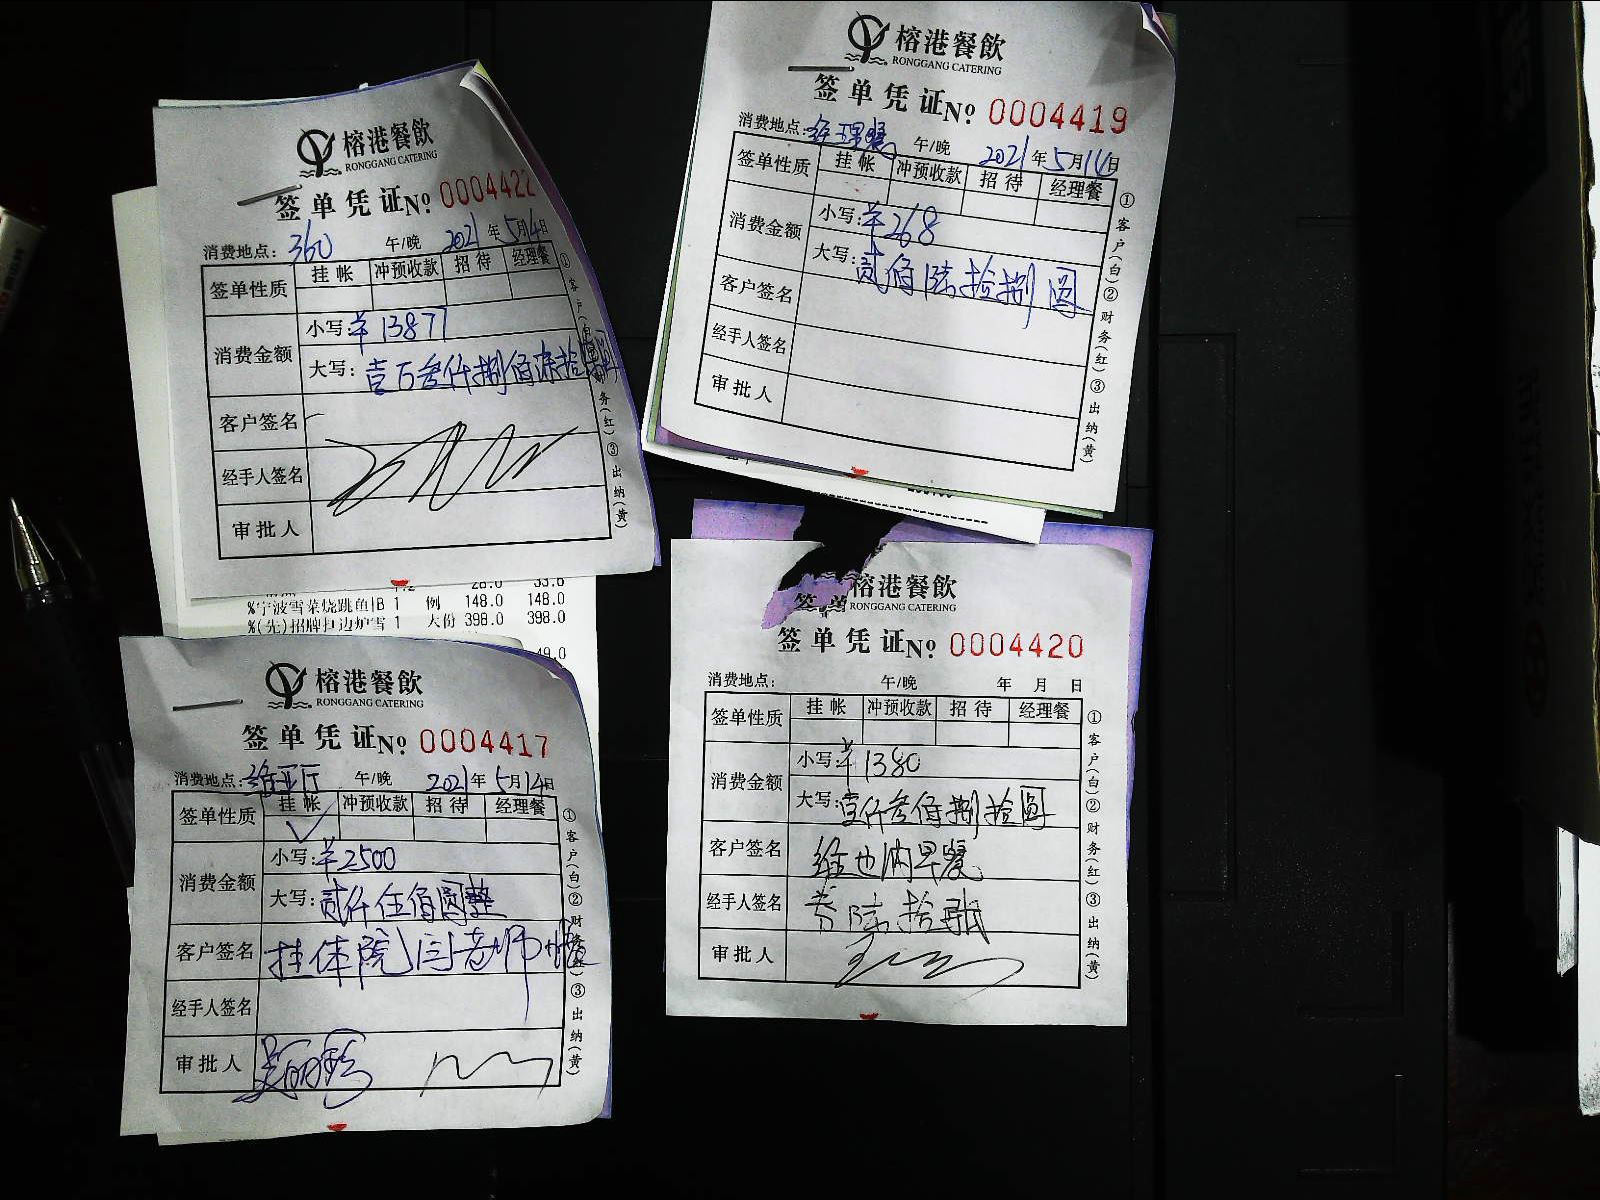 榕港餐飲
RONGGANG CATERING
签单凭证№ 0004422
消费地点：360 午/晚 2021年5月14日
签单性质 挂帐 冲预收款 招待 经理餐
消费金额 小写：¥13877
大写：壹万叁仟捌佰柒拾柒圆
客户签名
经手人签名
审批人
①客户(白)②财务(红)③出纳(黄)
榕港餐飲
RONGGANG CATERING
签单凭证№ 0004419
消费地点： 午/晚 2021年5月11日
签单性质 挂帐 冲预收款 招待 经理餐
消费金额 小写：¥268
大写：贰佰陆拾捌圆
客户签名
经手人签名
审批人
①客户(白)②财务(红)③出纳(黄)
28.0 33.6
%宁波雪菜烧跳鱼|B 1 例 148.0 148.0
%(先)招牌 边炉雪 1 大份 398.0 398.0
49.0
榕港餐飲
RONGGANG CATERING
签单凭证№ 0004417
消费地点：维亚厅 午/晚 2021年5月14日
签单性质 挂帐 冲预收款 招待 经理餐
✓
消费金额 小写：¥2500
大写：贰仟伍佰圆整
客户签名 挂体院闫老师帐
经手人签名
审批人
①客户(白)②财务(红)③出纳(黄)
榕港餐飲
签单 RONGGANG CATERING
签单凭证№ 0004420
消费地点： 午/晚 年 月 日
签单性质 挂帐 冲预收款 招待 经理餐
消费金额 小写：¥1380
大写：壹仟叁佰捌拾圆
客户签名 维也纳早餐
经手人签名 券陆拾张
审批人
①客户(白)②财务(红)③出纳(黄)